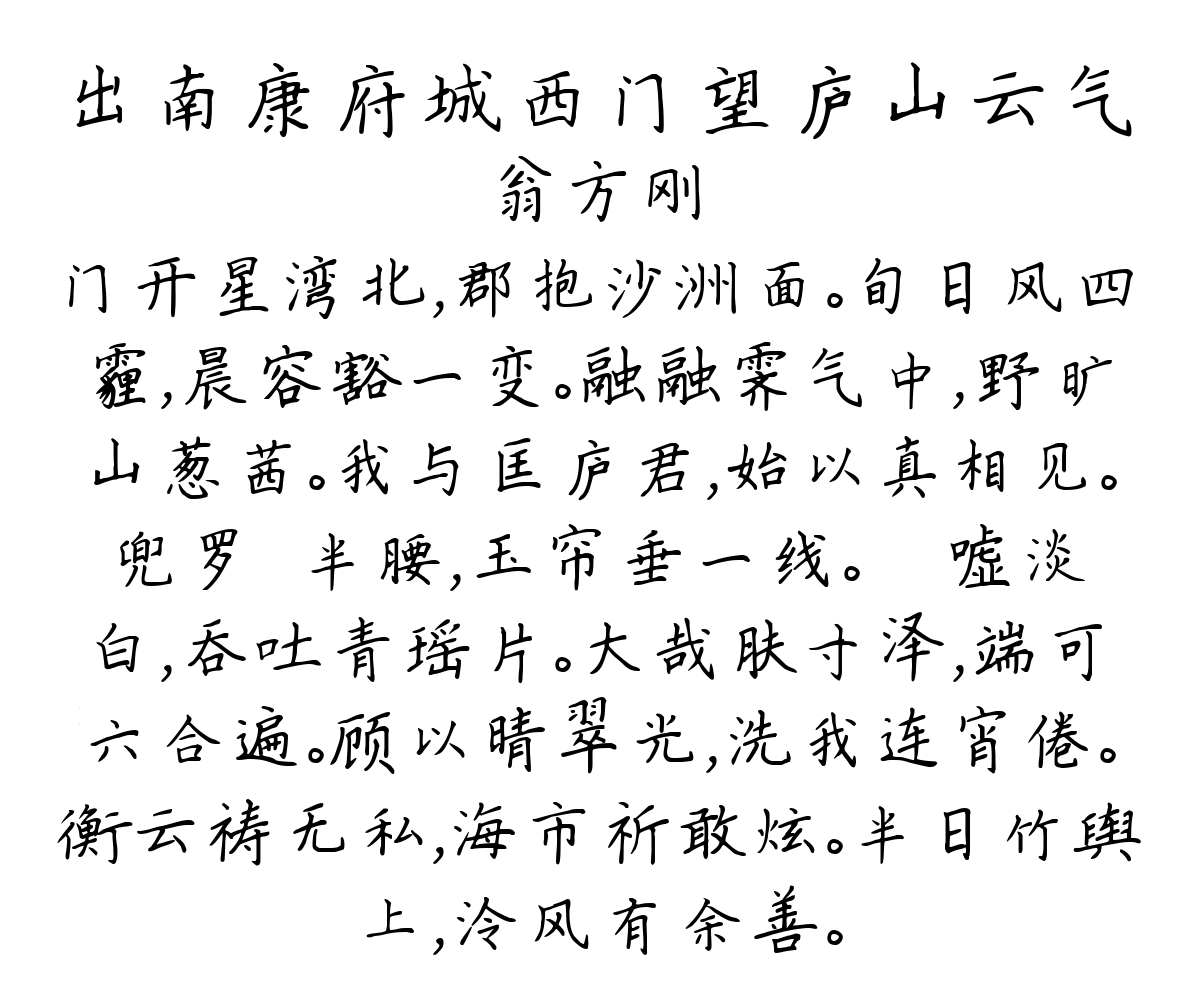 出南康府城西门望庐山云气
翁方刚
门开星湾北,郡抱沙洲面。旬日风四
霾,晨容豁一变。融融霁气中,野旷
山葱茜。我与匡庐君,始以真相见。
兜罗 半腰,玉帘垂一线。 嘘淡
白,吞吐青瑶片。大哉肤寸泽,端可
六合遍。顾以晴翠光,洗我连宵倦。
衡云祷无私,海市祈敢炫。半日竹舆
上,泠风有余善。